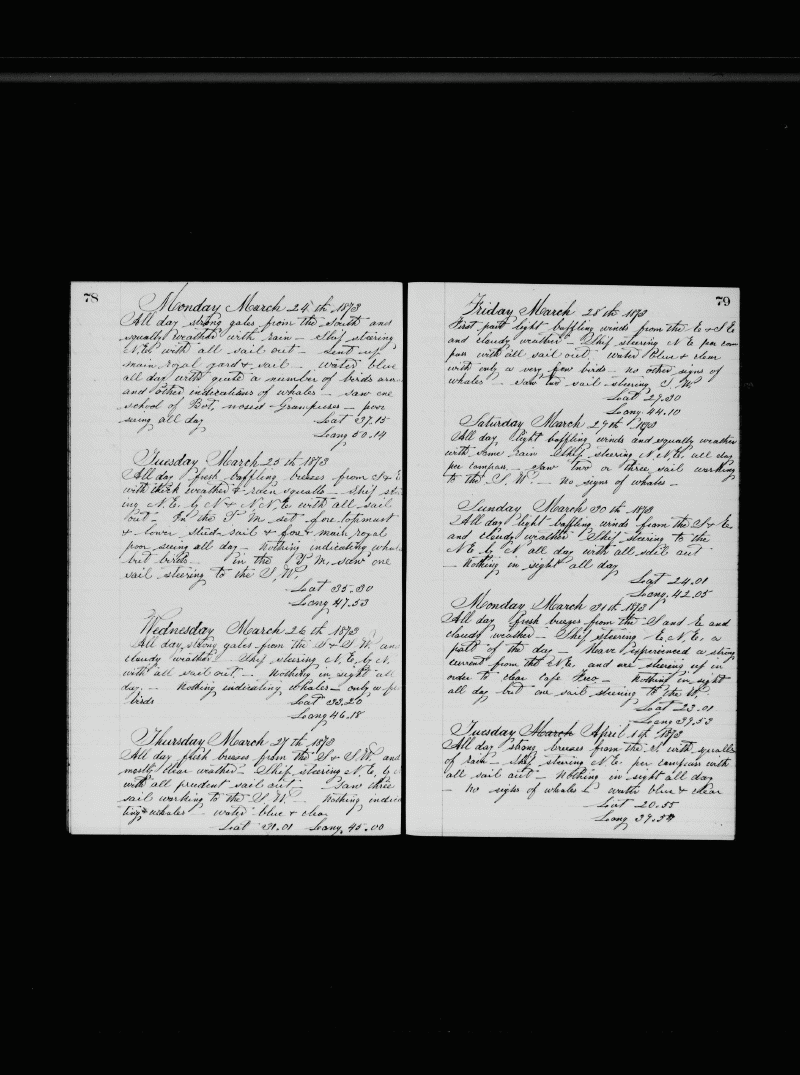 78
Monday March 24 th 1873
All day strong gales from the South and
squally weather with rain - Ship steering
N.E. with all sail out - Sent up
main royal yard & sail - water blue
all day with quite a number of birds
and other indications of whales - saw one
school of Bot, nosed & Grampuses - poor
seeing all day Lat 37.15
Long 50.14
Tuesday March 25 th 1873
All day fresh baffling breezes from S & E
with thick weather & rain squalls - Ship
ing N.E. by N & N.N.E. with all sail
out - In the P M. set fore topmast
& lower stud-sail & fore & main royal
poor seeing all day - Nothing indicating
but birds - In the P M. saw one
sail steering to the S.W.
Lat 35.30
Long 47.53
Wednesday March 26 th 1873
All day strong gales from the S & S.W. an
cloudy weather - Ship steering N.E. by N.
with all sail out - Nothing in sight all
day - Nothing indicating whales - only a
birds Lat 33.20
Long 46.18
Thursday March 27 th 1873
All day fresh breezes from the S & S.W. and
mostly clear weather - Ship steering N.E. by
with all prudent sail out - Saw three
sail working to the S.W. - Nothing indica
ting whales - water blue & clear
Lat 31.01 Long. 45.00
79
Friday March 28 th 1873
First part light baffling winds from the E & S E
and cloudy weather - Ship steering N E per com
pass with all sail out, water blue & clear
with only a very few birds - no other signs of
whales - saw two sail steering S W
Lat 29.30
Long 44.10
Saturday March 29 th 1873
All day light baffling winds and squally weather
with some rain Ship steering N.N.E. all day
per compass - Saw two or three sail working
to the S.W. - No signs of whales -
Sunday March 30 th 1873
All day light baffling winds from the S & E
and cloudy weather Ship steering to the
N E by N all day with all sail out
- Nothing in sight all day
Lat 24.01
Long. 42.05
Monday March 31 th 1873
All day fresh breezes from the S and E and
cloudy weather - Ship steering E.N.E. a
part of the day - Have experienced a strong
current from the N.E. and are steering up in
order to clear Cape - Nothing in sight
all day but one sail steering to the W.
Lat 23.01
Long 39.53
Tuesday March April 1 st 1873
All day strong breezes from the E with squalls
of rain - Ship steering N E per compass with
all sail out - Nothing in sight all day
- no signs of whales water blue & clear
Lat 20.55
Long 37.54